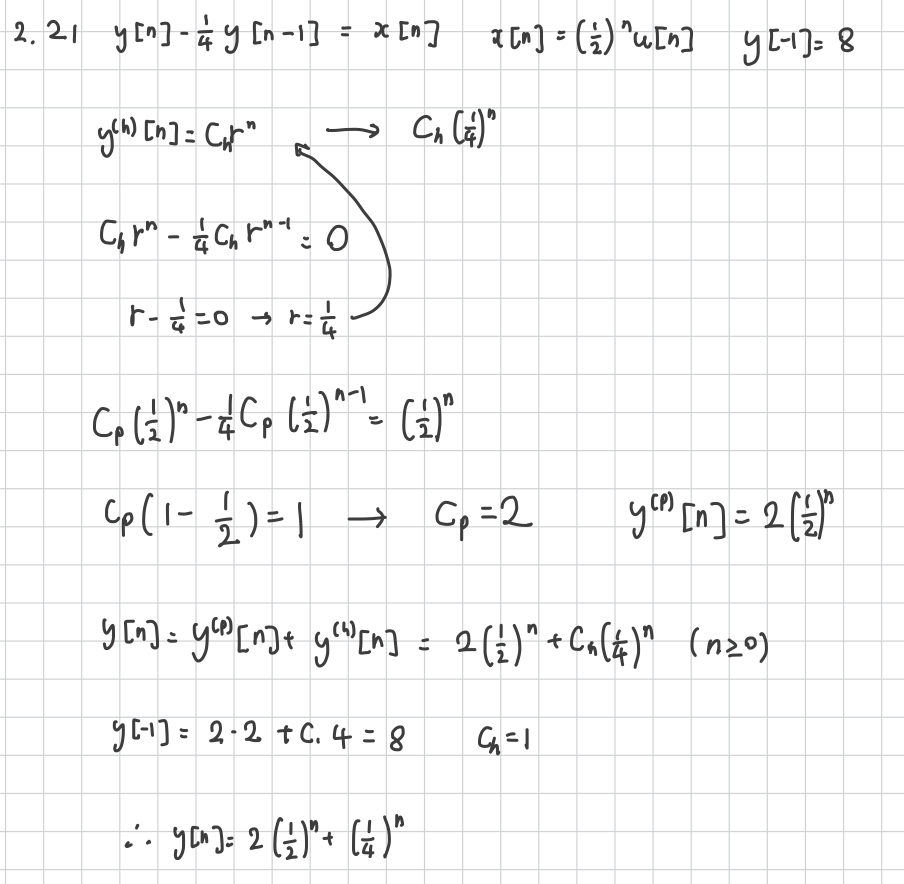 2.21 y[n] - 1/4 y[n-1] = x[n] x[n] = (1/2)^n u[n] y[-1] = 8
y^(h)[n] = C_h r^n → C_h (1/4)^n
C_h r^n - 1/4 C_h r^(n-1) = 0
r - 1/4 = 0 → r = 1/4
C_p (1/2)^n - 1/4 C_p (1/2)^(n-1) = (1/2)^n
C_p (1 - 1/2) = 1 → C_p = 2 y^(p)[n] = 2(1/2)^n
y[n] = y^(p)[n] + y^(h)[n] = 2(1/2)^n + C_h (1/4)^n (n≥0)
y[-1] = 2·2 + C.4 = 8 C_h = 1
∴ y[n] = 2(1/2)^n + (1/4)^n